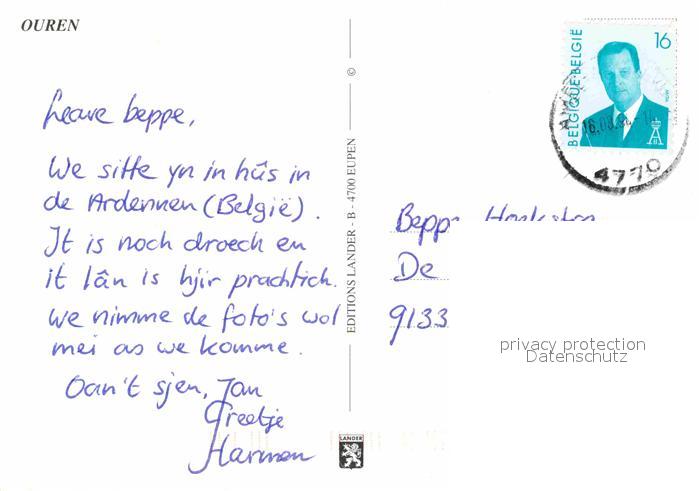 OUREN
Leave beppe,
We sitte yn in hûs in
de Ardennen (België).
It is noch droech en
it lân is hjir prachtich.
We nimme de foto's wol
mei as we komme.
Oan't sjen, Jan
Greetje
Harmen
EDITIONS LANDER - B - 4700 EUPEN
©
LANDER
BELGIQUE-BELGIË
16
4770
De
9133
privacy protection
Datenschutz